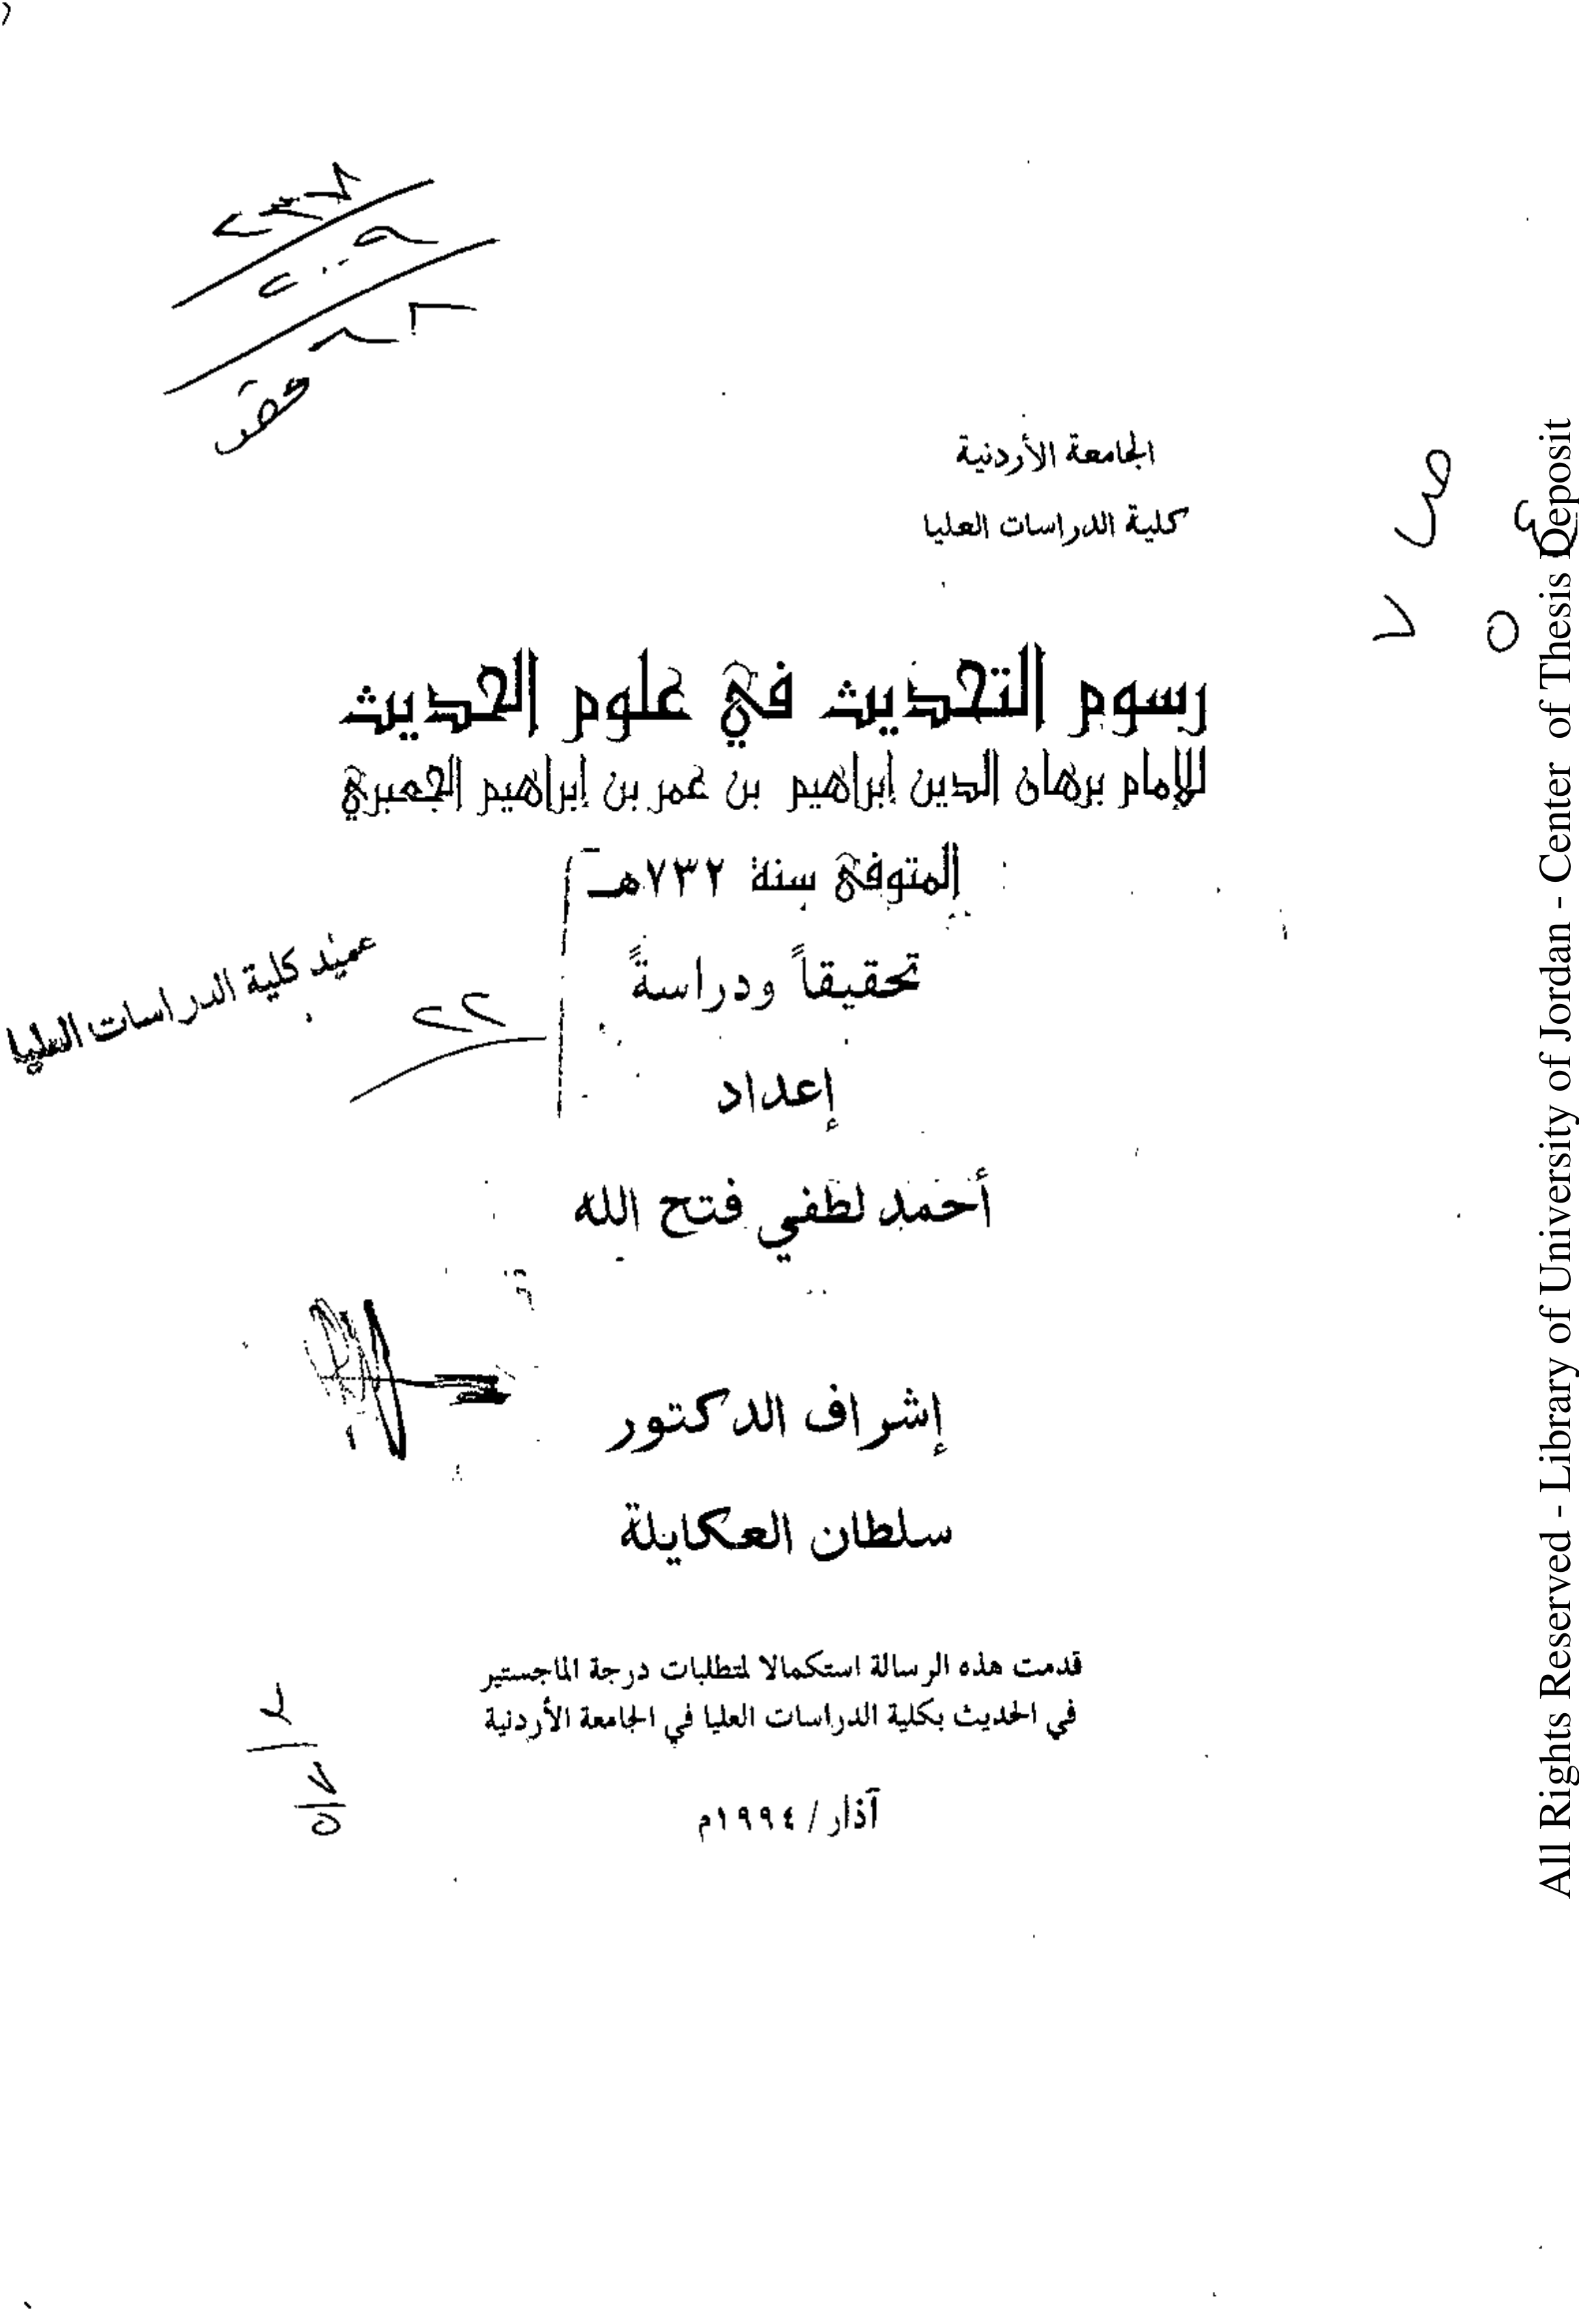 الجامعة الأردنية
كلية الدراسات العليا
رسوم التحديث في علوم الحديث
للإمام برهان الدين إبراهيم بن عمر بن إبراهيم الجعبري
المتوفى سنة ٧٣٢هـ
تحقيقاً ودراسةً
عميد كلية الدراسات العليا
إعداد
أحمد لطفي فتح الله
إشراف الدكتور
سلطان العكايلة
قدمت هذه الرسالة استكمالا لمتطلبات درجة الماجستير
في الحديث بكلية الدراسات العليا في الجامعة الأردنية
آذار / ١٩٩٤م
All Rights Reserved - Library of University of Jordan - Center of Thesis Deposit